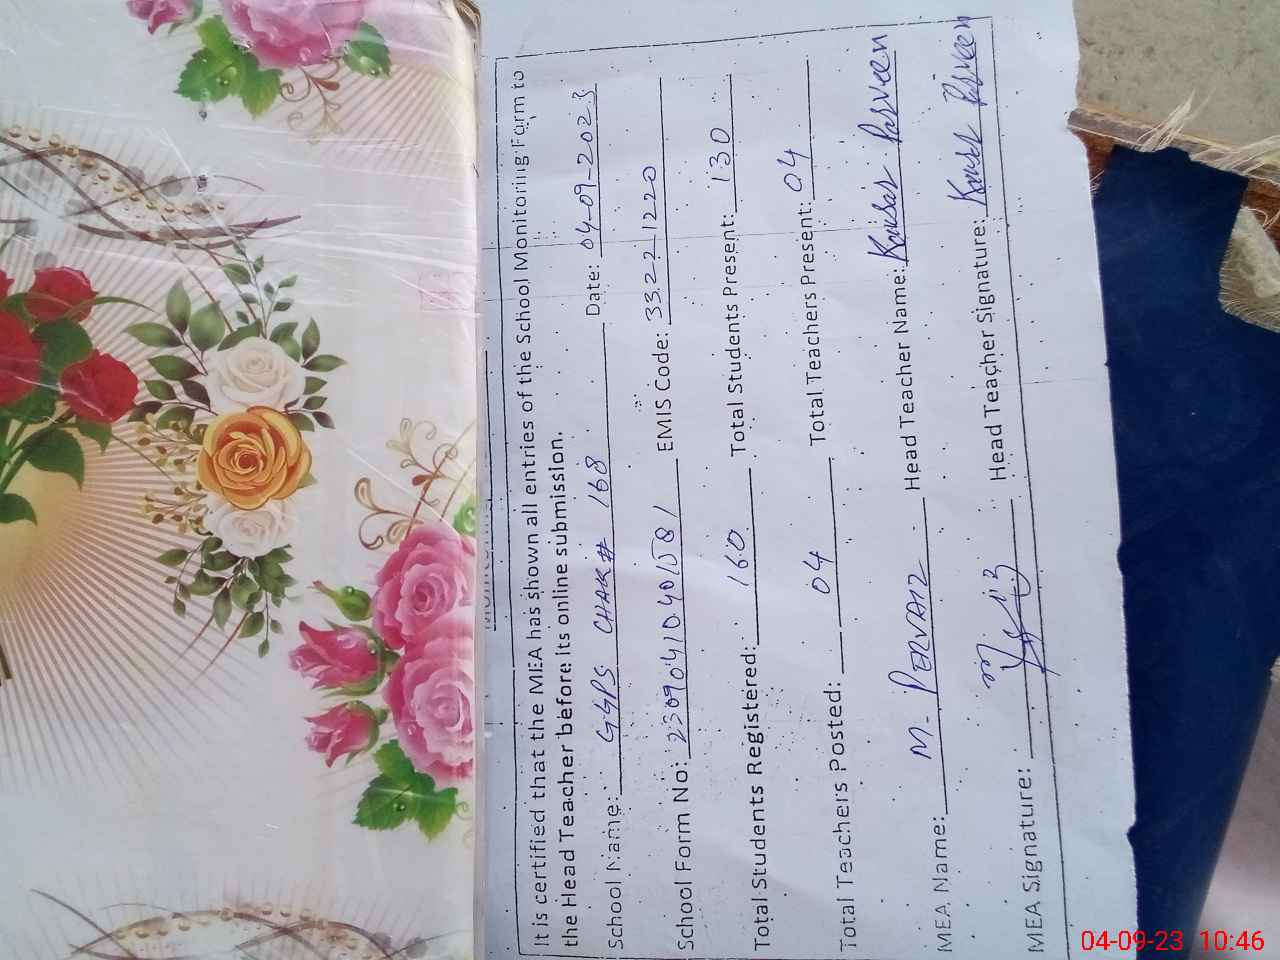 It is certified that the MEA has shown all entries of the School Monitoring Form to
the Head Teacher before its online submission.
School Name: GGPS CHAK # 168 Date: 04-09-2023
School Form No: EMIS Code: 33221220
Total Students Registered: 160 Total Students Present: 130
Total Teachers Posted: 04 Total Teachers Present: 04
MEA Name: M. PERVAIZ Head Teacher Name: Kousar Parveen
MEA Signature: Head Teacher Signature: Kousar Parveen
04-09-23 10:46